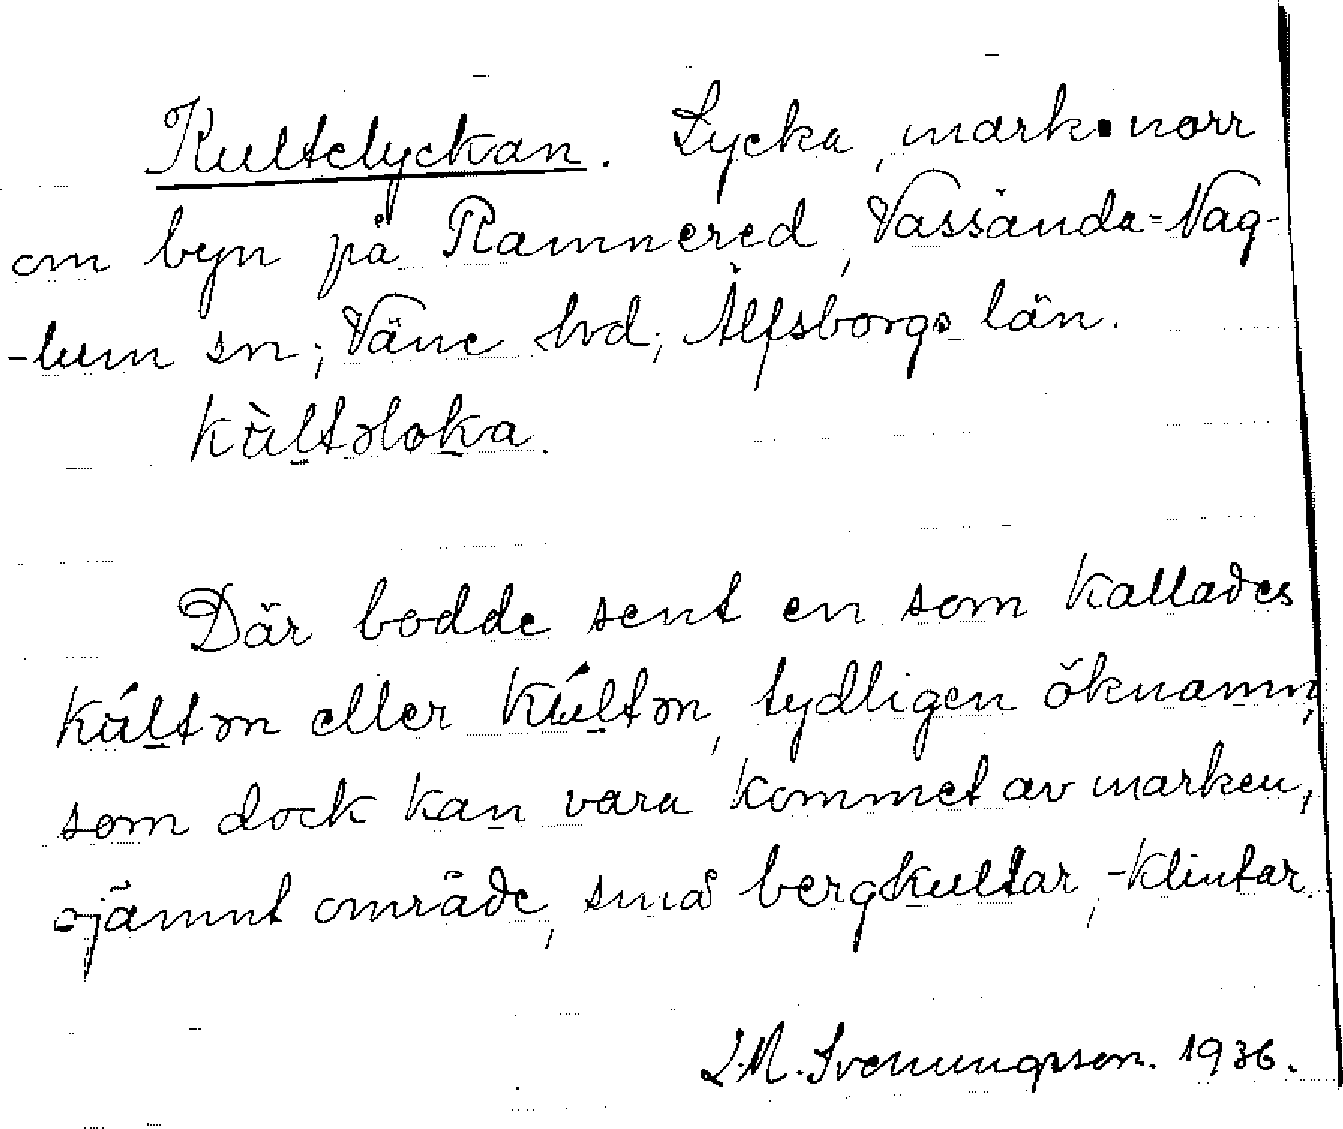 Kultelyckan. Lycka, mark norr
om byn på Ramnered, Vassända-Nag-
-lum sn; Väne hd; Älfsborgs län.
kùltəloka.
Där bodde sent en som kallades
kúltən eller kúltən, tydligen öknamn,
som dock kan vara kommet av marken,
ojämnt område, små bergkultar, -klintar.
L.M. Svenungsson. 1936.